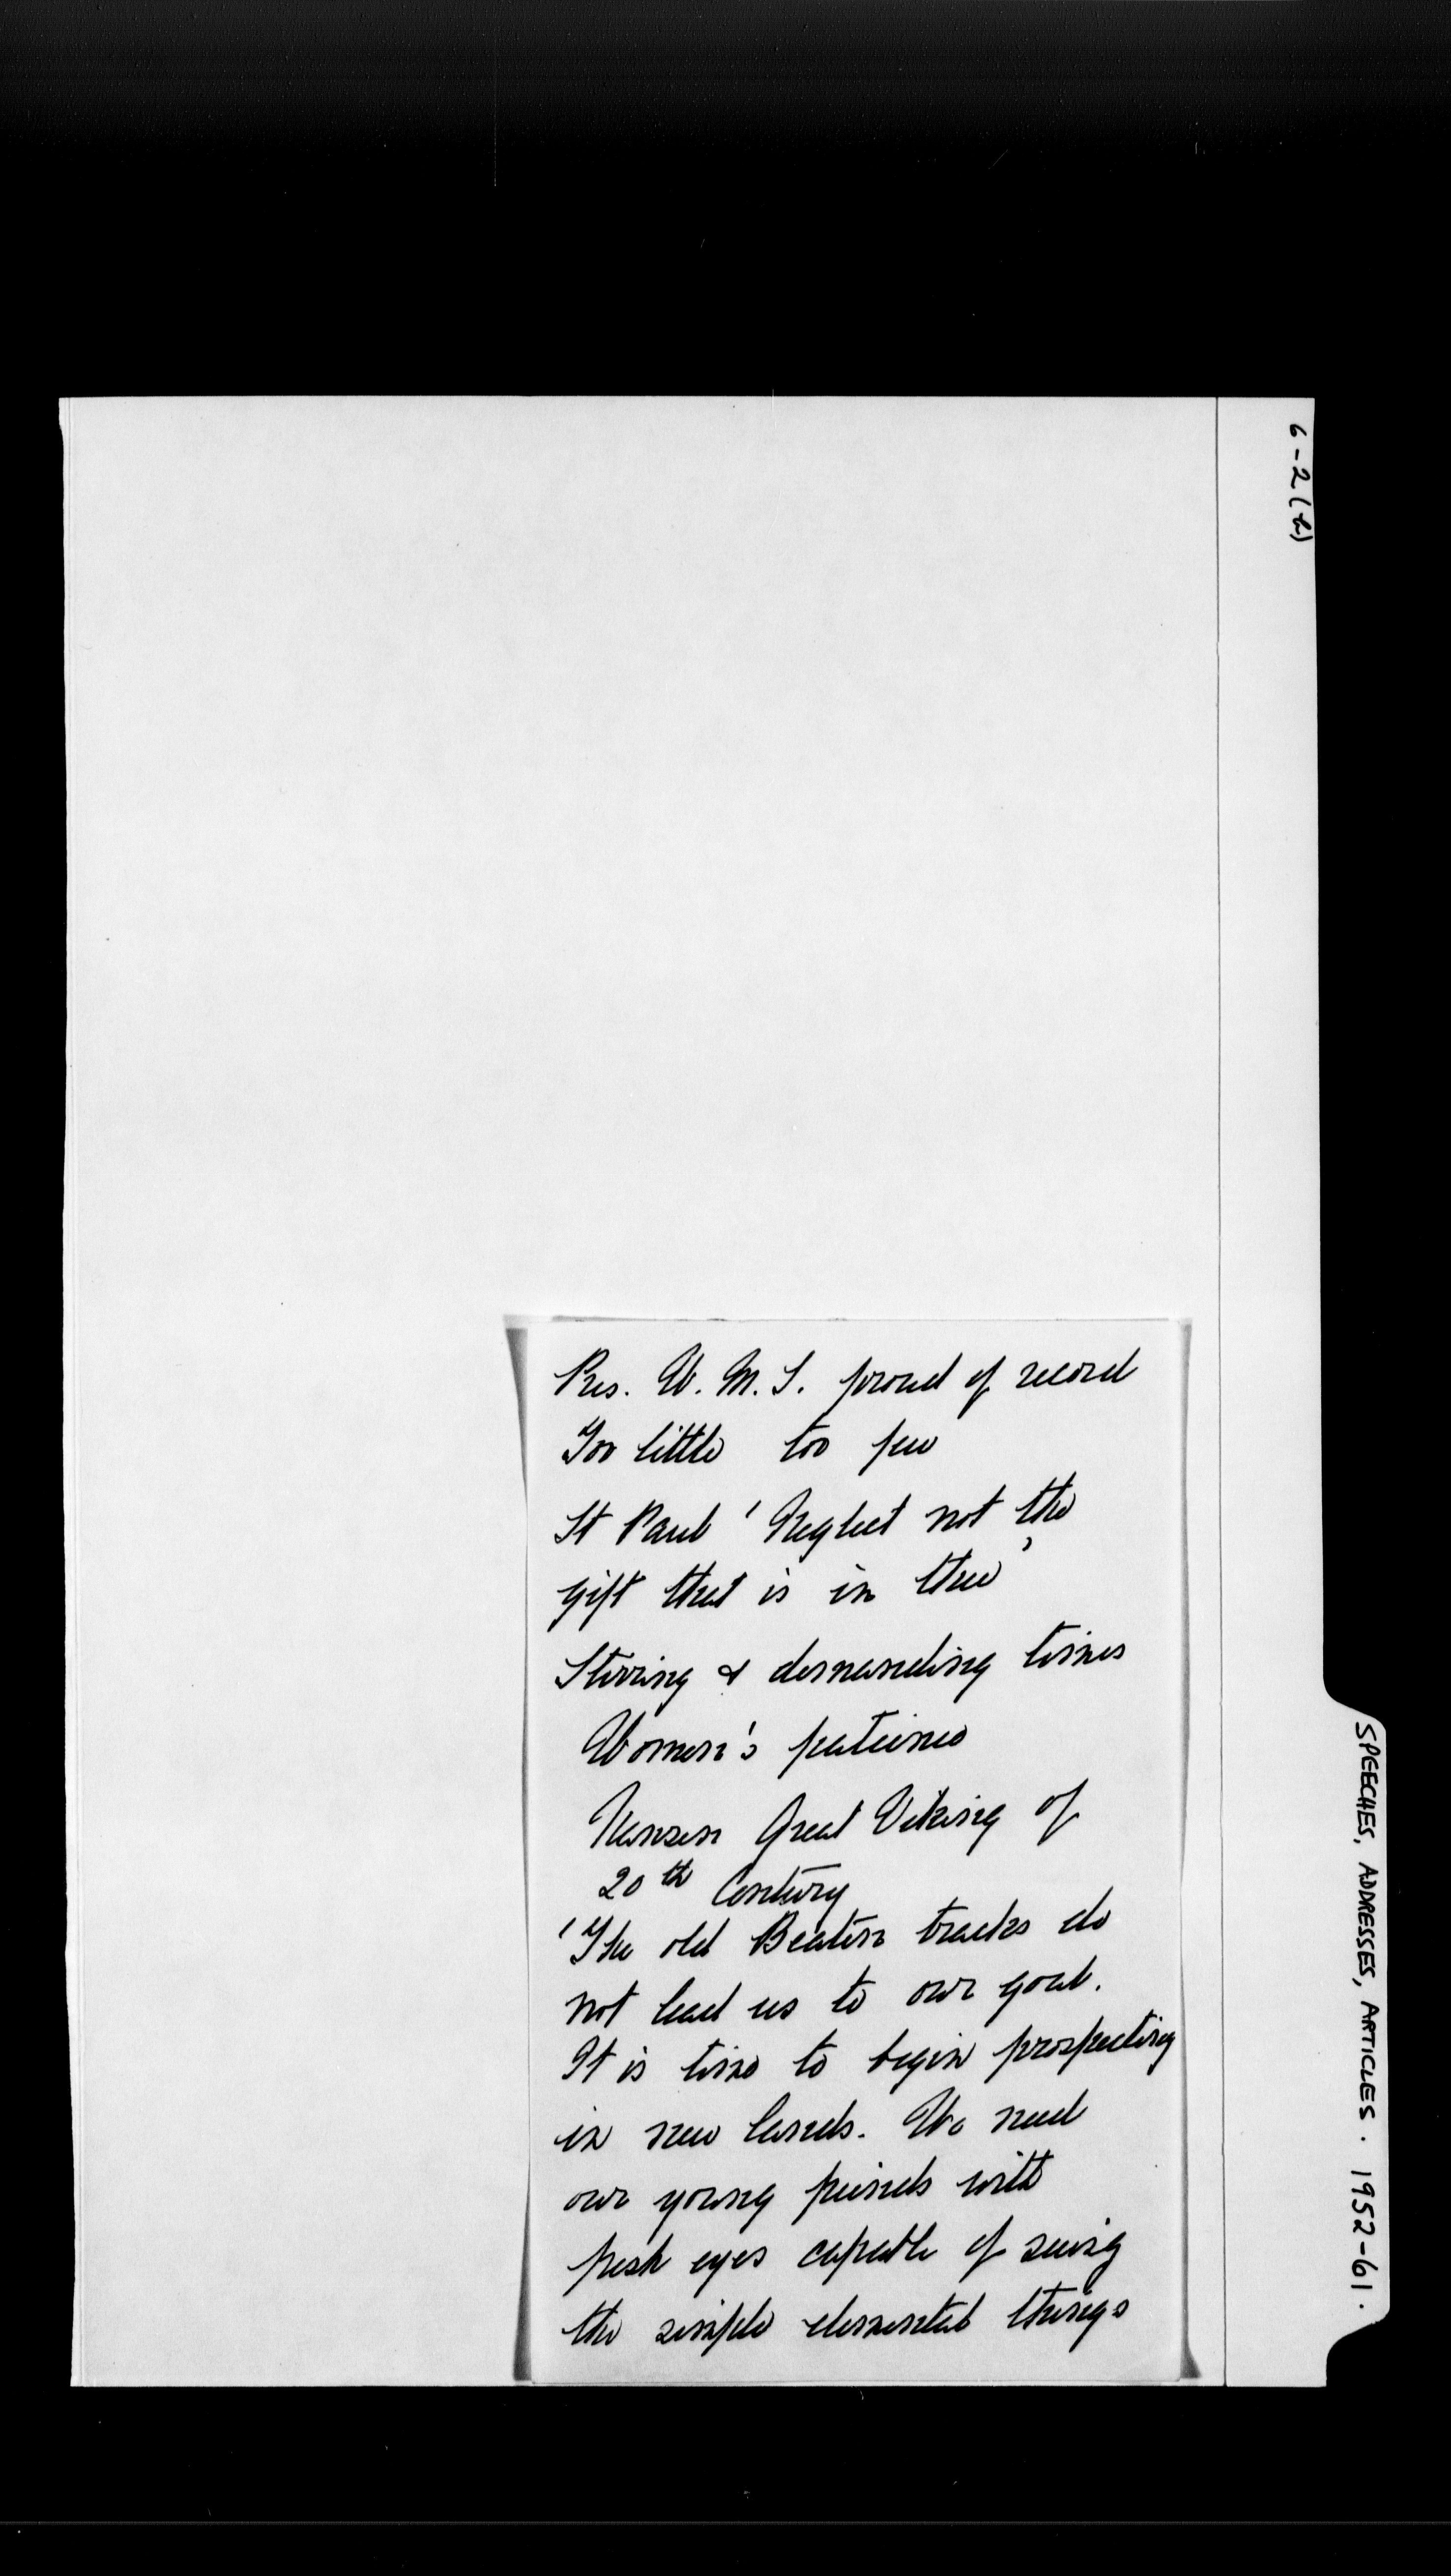 6-2(h)
SPEECHES, ADDRESSES, ARTICLES. 1952-61.
Pres. W. M. S. proud of record
Too little too few
St Paul 'Neglect not the
gift that is in thee'
Stirring & demanding times
Women's patience
Nansen Great Viking of
20th Century
'The old Beaten tracks do
not lead us to our goal.
It is time to begin prospecting
in new lands. We need
our young friends with
fresh eyes capable of seeing
the simple elemental things